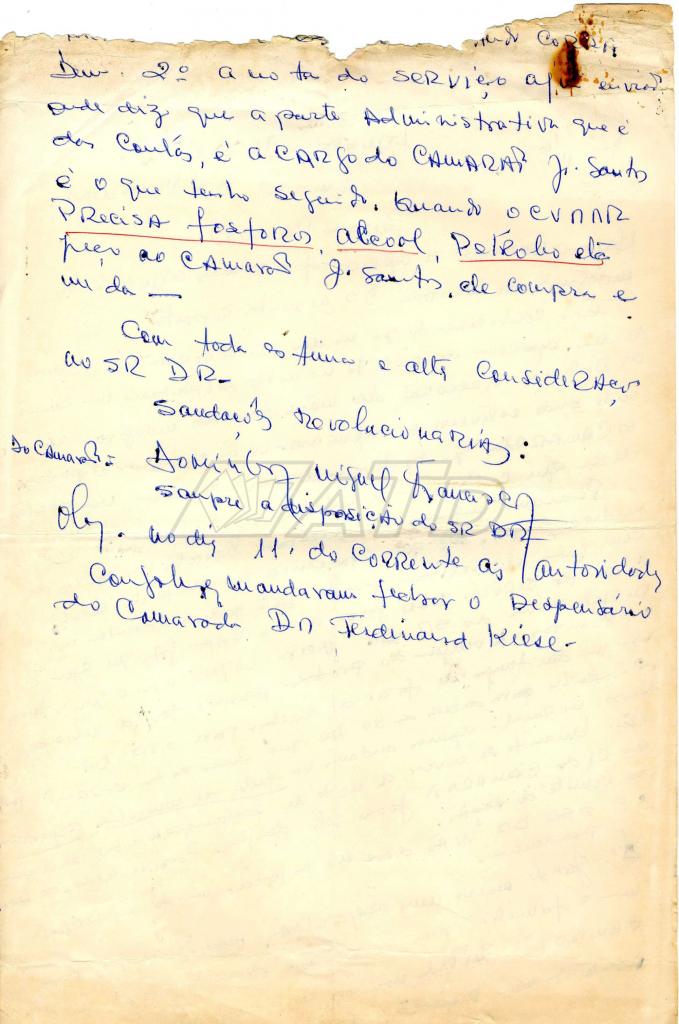 ando
Dem. 2º a nota do serviço
onde diz que a parte Administrativa que é
das Contas, é a CARgo do CAMARADA J. Santos
é o que tenho seguido. Quando o CVAAR
PRecisA fosforos, alcool, Petróleo etc
peço ao CAmarada J. Santos, ele compra e
me da —
Com toda estima e alta ConsideRAção
ao SR DR-
Saudações Revolucionarias:
Do CAmarada:- Domingos Miguel Francisco
Sempre a disposição do SR DR
Obs. no dia 11. do CORRente as autoridades
Congolezas mandaram fechar o Despensário
do Camarada DR Ferdinand Kiese-
ATD